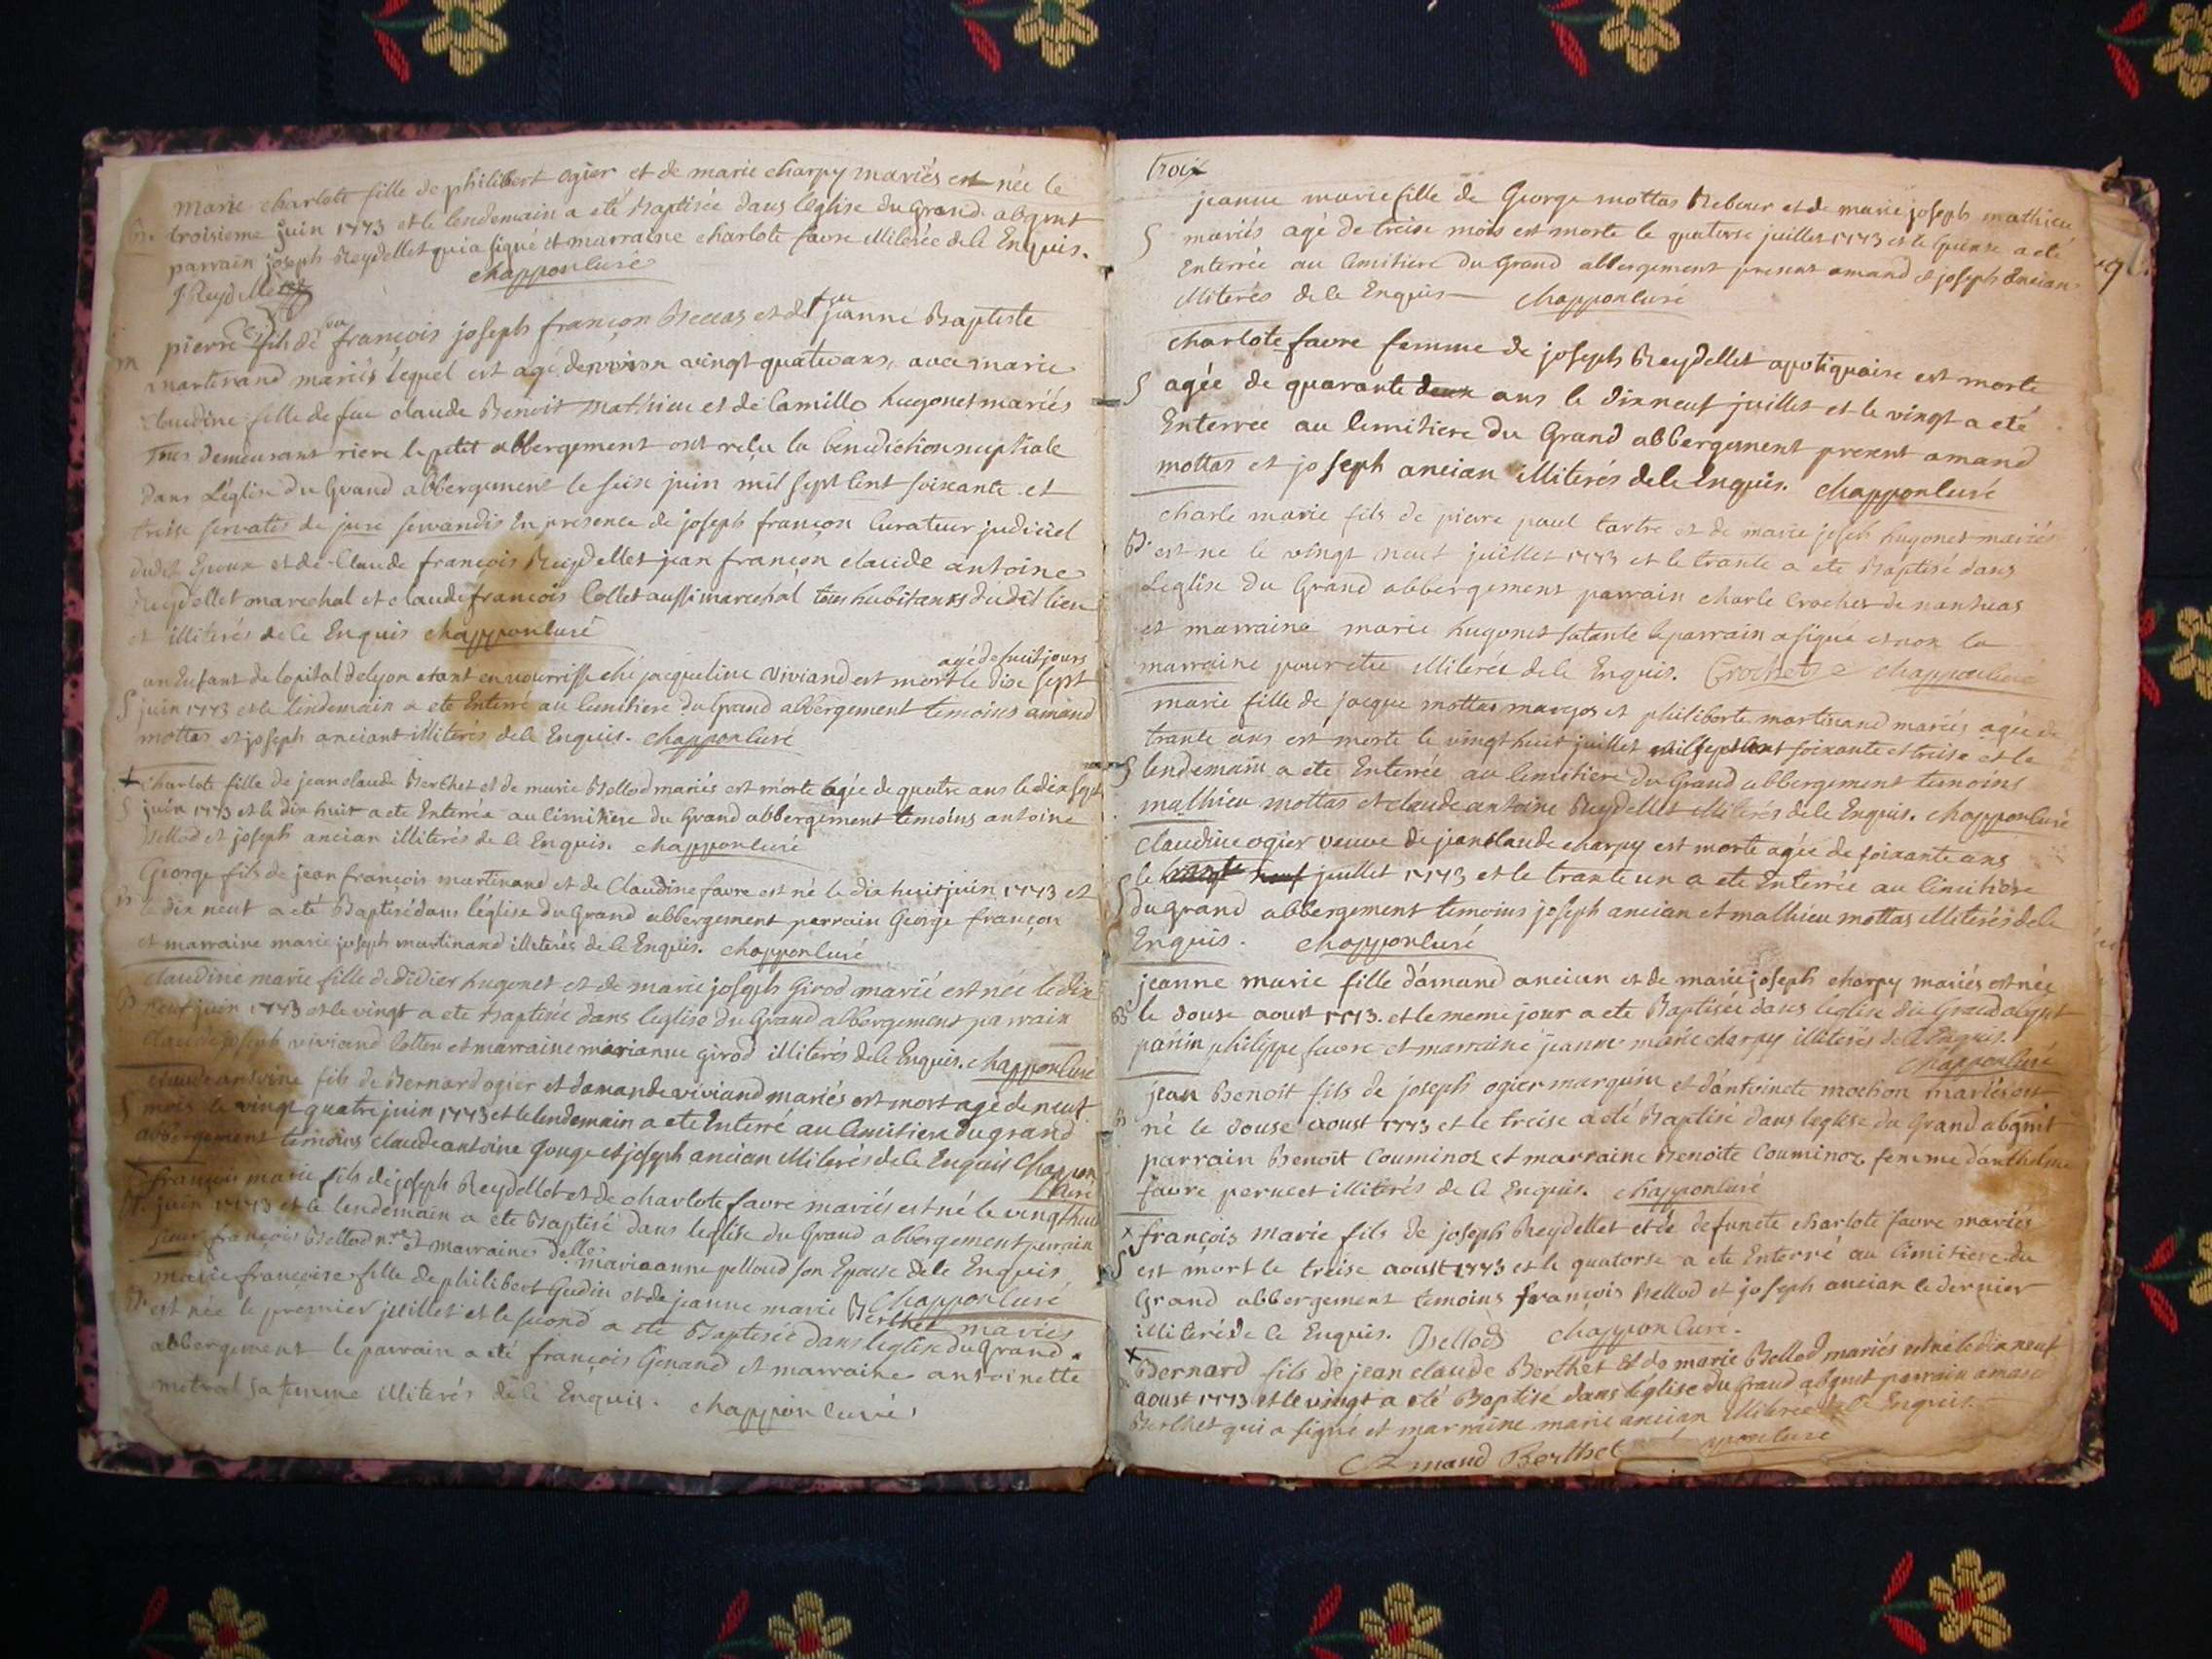 marie charlote fille de philibert ogier et de marie charpy mariés est née le
B. troisieme juin 1773 et le lendemain a eté Baptisée dans leglise du Grand abgmt
parrain joseph Reydellet qui a signé et marraine charlote favre illiterée de ce Enquis.
J Reydellet chappon curé
pierre fils de feu françois joseph françon Beccas et de feu jeanne Baptiste
m martinand mariés lequel est agé denviron vingt quatre ans, avec marie
claudine fille de feu claude Benoit mathieu et de Camille hugonet mariés
tous demeurant riere le petit abbergement ont reçu la benediction nuptiale
dans L'église du Grand abbergement le seise juin mil sept cent soixante et
treise servatis de jure servandis En presence de joseph françon Curateur judiciel
dudit Epoux et de Claude françois Reydellet jean françon claude antoine
Reydellet marechal et claude françois Collet aussi marechal tous habitants dudit lieu
et illiterés de ce Enquis chappon curé
agé de huit jours
un Enfant de lopital de lyon etant en nourrisse ché jacqueline Viviand est mort le dix sept
S juin 1773 et le lendemain a ete Enterré au cemitiere du Grand abbergement temoins amand
mottas et joseph anciant illiterés de ce Enquis. chappon curé
charlote fille de jean claude Berthet et de marie Bellod mariés est morte agée de quatre ans le dix sept
S juin 1773 et le dix huit a ete Enterrée au cimitiere du Grand abbergement temoins antoine
Bellod et joseph ancian illiterés de ce Enquis. chappon curé
George fils de jean françois martinand et de Claudine favre est né le dix huit juin 1773 et
B le dix neuf a eté Baptisé dans léglise du Grand abbergement parrain George françon
et marraine marie joseph martinand illiterés de ce Enquis. chappon curé
claudine marie fille de didier hugonet et de marie joseph Girod marié est née le dix
B neuf juin 1773 et le vingt a ete Baptisée dans leglise du Grand abbergement parrain
claude joseph viviand et marraine marianne girod illiterés de ce Enquis. chappon curé
claude antoine fils de Bernard ogier et damande viviand mariés est mort agé de neuf
S mois le vingt quatre juin 1773 et le lendemain a ete Enterré au Cemitiere du grand
abbergement temoins claude antoine Gouge et joseph ancian illiterés de ce Enquis Chappon
curé
françois marie fils de joseph Reydellet et de charlote favre mariés est né le vingt huit
B. juin 1773 et le lendemain a ete Baptisé dans leglise du Grand abbergement parrain
sieur françois Bellod nre et marraine delle marie anne pelloud son Epouse de ce Enquis
chappon curé
marie françoise fille de philibert Gudin et de jeanne marie Berthet mariés
B. est née le premier juillet et le second a ete Baptisée dans leglise du Grand
abbergement le parrain a eté françois Genand et marraine antoinette
metral sa femme illiterés de ce Enquis. chappon curé
troix
jeanne marie fille de George mottas Rebour et de marie joseph mathieu
S mariés agé de treise mois est morte le quatorse juillet 1773 et le quinse a eté
Enterrée au Cimitiere du Grand abbergement present amand et joseph Ancian
illiterés de ce Enquis chappon curé
charlote favre femme de joseph Reydellet apotiquaire est morte
S agée de quarante deux ans le dix neuf juillet et le vingt a eté
Enterrée au Cemitiere du Grand abbergement present amand
mottas et joseph ancian illiterés de ce Enquis. chappon curé
charle marie fils de pierre paul tartre et de marie joseph hugonet mariés
B. est né le vingt neuf juillet 1773 et le trante a ete Baptisé dans
Leglise du Grand abbergement parrain charle Crochet de nantuas
et marraine marie hugonet sa tante le parrain a signé et non la
marraine pour etre illiterée de ce Enquis. Crochet chappon curé
marie fille de jacque mottas margos et philiberte martinand mariés agée de
trante ans est morte le vingt huit juillet mil sept cent soixante et treise et le
S lendemain a ete Enterrée au Cemitiere du Grand abbergement temoins
mathieu mottas et claude antoine Reydellet illiterés de ce Enquis. chappon curé
claudine ogier veuve de jean claude charpy est morte agée de soixante ans
le juillet 1773 et le trante un a ete Enterrée au cimitiere
S du Grand abbergement temoins joseph ancian et mathieu mottas illiterés de ce
Enquis. chappon curé
jeanne marie fille d'amand ancian et de marie joseph charpy mariés est née
B le douse aoust 1773. et le meme jour a ete Baptisée dans leglise du Grand abgmt
parrin philippe favre et marraine jeanne marie charpy illiterés de ce Enquis.
chappon curé
jean Benoit fils de joseph ogier marquin et d'antoinete mochon mariés est
B né le douse aoust 1773 et le treise a eté Baptisé dans leglise du Grand abgmt
parrain Benoit Couminoz et marraine Benoite Couminoz femme d'anthelme
favre peruet illiterés de ce Enquis. chappon curé
x françois marie fils de joseph Reydellet et de defuncte charlote favre mariés
S est mort le treise aoust 1773 et le quatorse a ete Enterré au cimitiere du
Grand abbergement temoins françois Bellod et joseph ancian le dernier
illiteré de ce Enquis. Bellod chappon curé.
x Bernard fils de jean claude Berthet et de marie Bellod mariés est né le dix neuf
aoust 1773 et le vingt a eté Baptisé dans léglise du Grand abgmt parrain amand
Berthet qui a signé et marraine marie ancian illiterée de ce Enquis.
Amand Berthet chappon curé